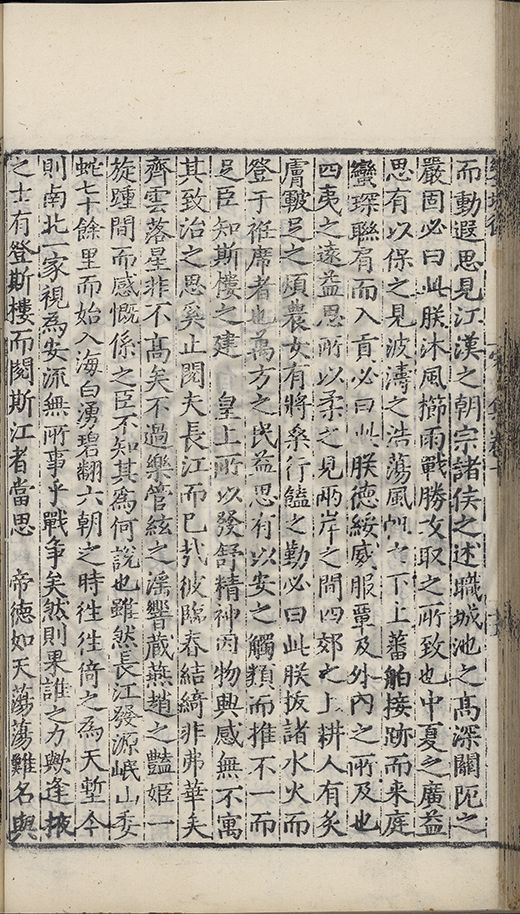 而動遐思見江漢之朝宗諸侯之述職城池之高深關阨之
嚴固必曰此朕沐風櫛雨戰勝攻取之所致也中夏之廣益
思有以保之見波濤之浩蕩風帆之下上蕃舶接跡而来庭
蠻琛聯肩而入貢必曰此朕德綏威服覃及外内之所及也
四夷之遠益思所以柔之見兩岸之間四郊之上耕人有炙
膚皸足之煩農女有將桑行饁之勤必曰此朕拔諸水火而
登于袵席者也萬方之民益思有以安之觸類而推不一而
足臣知斯樓之建　皇上所以發舒精神因物興感無不寓
其致治之思奚止閱夫長江而已哉彼臨春結綺非弗華矣
齊雲落星非不髙矣不過樂管絃之淫響藏燕趙之豔姬一
旋踵間而感慨係之臣不知其為何說也雖然長江發源岷山委
蛇七十餘里而始入海白湧碧翻六朝之時徃徃倚之為天塹今
則南北一家視為安流無所事乎戰爭矣然則果誰之力歟逢掖
之士有登斯樓而閱斯江者當思　帝德如天蕩蕩難名與